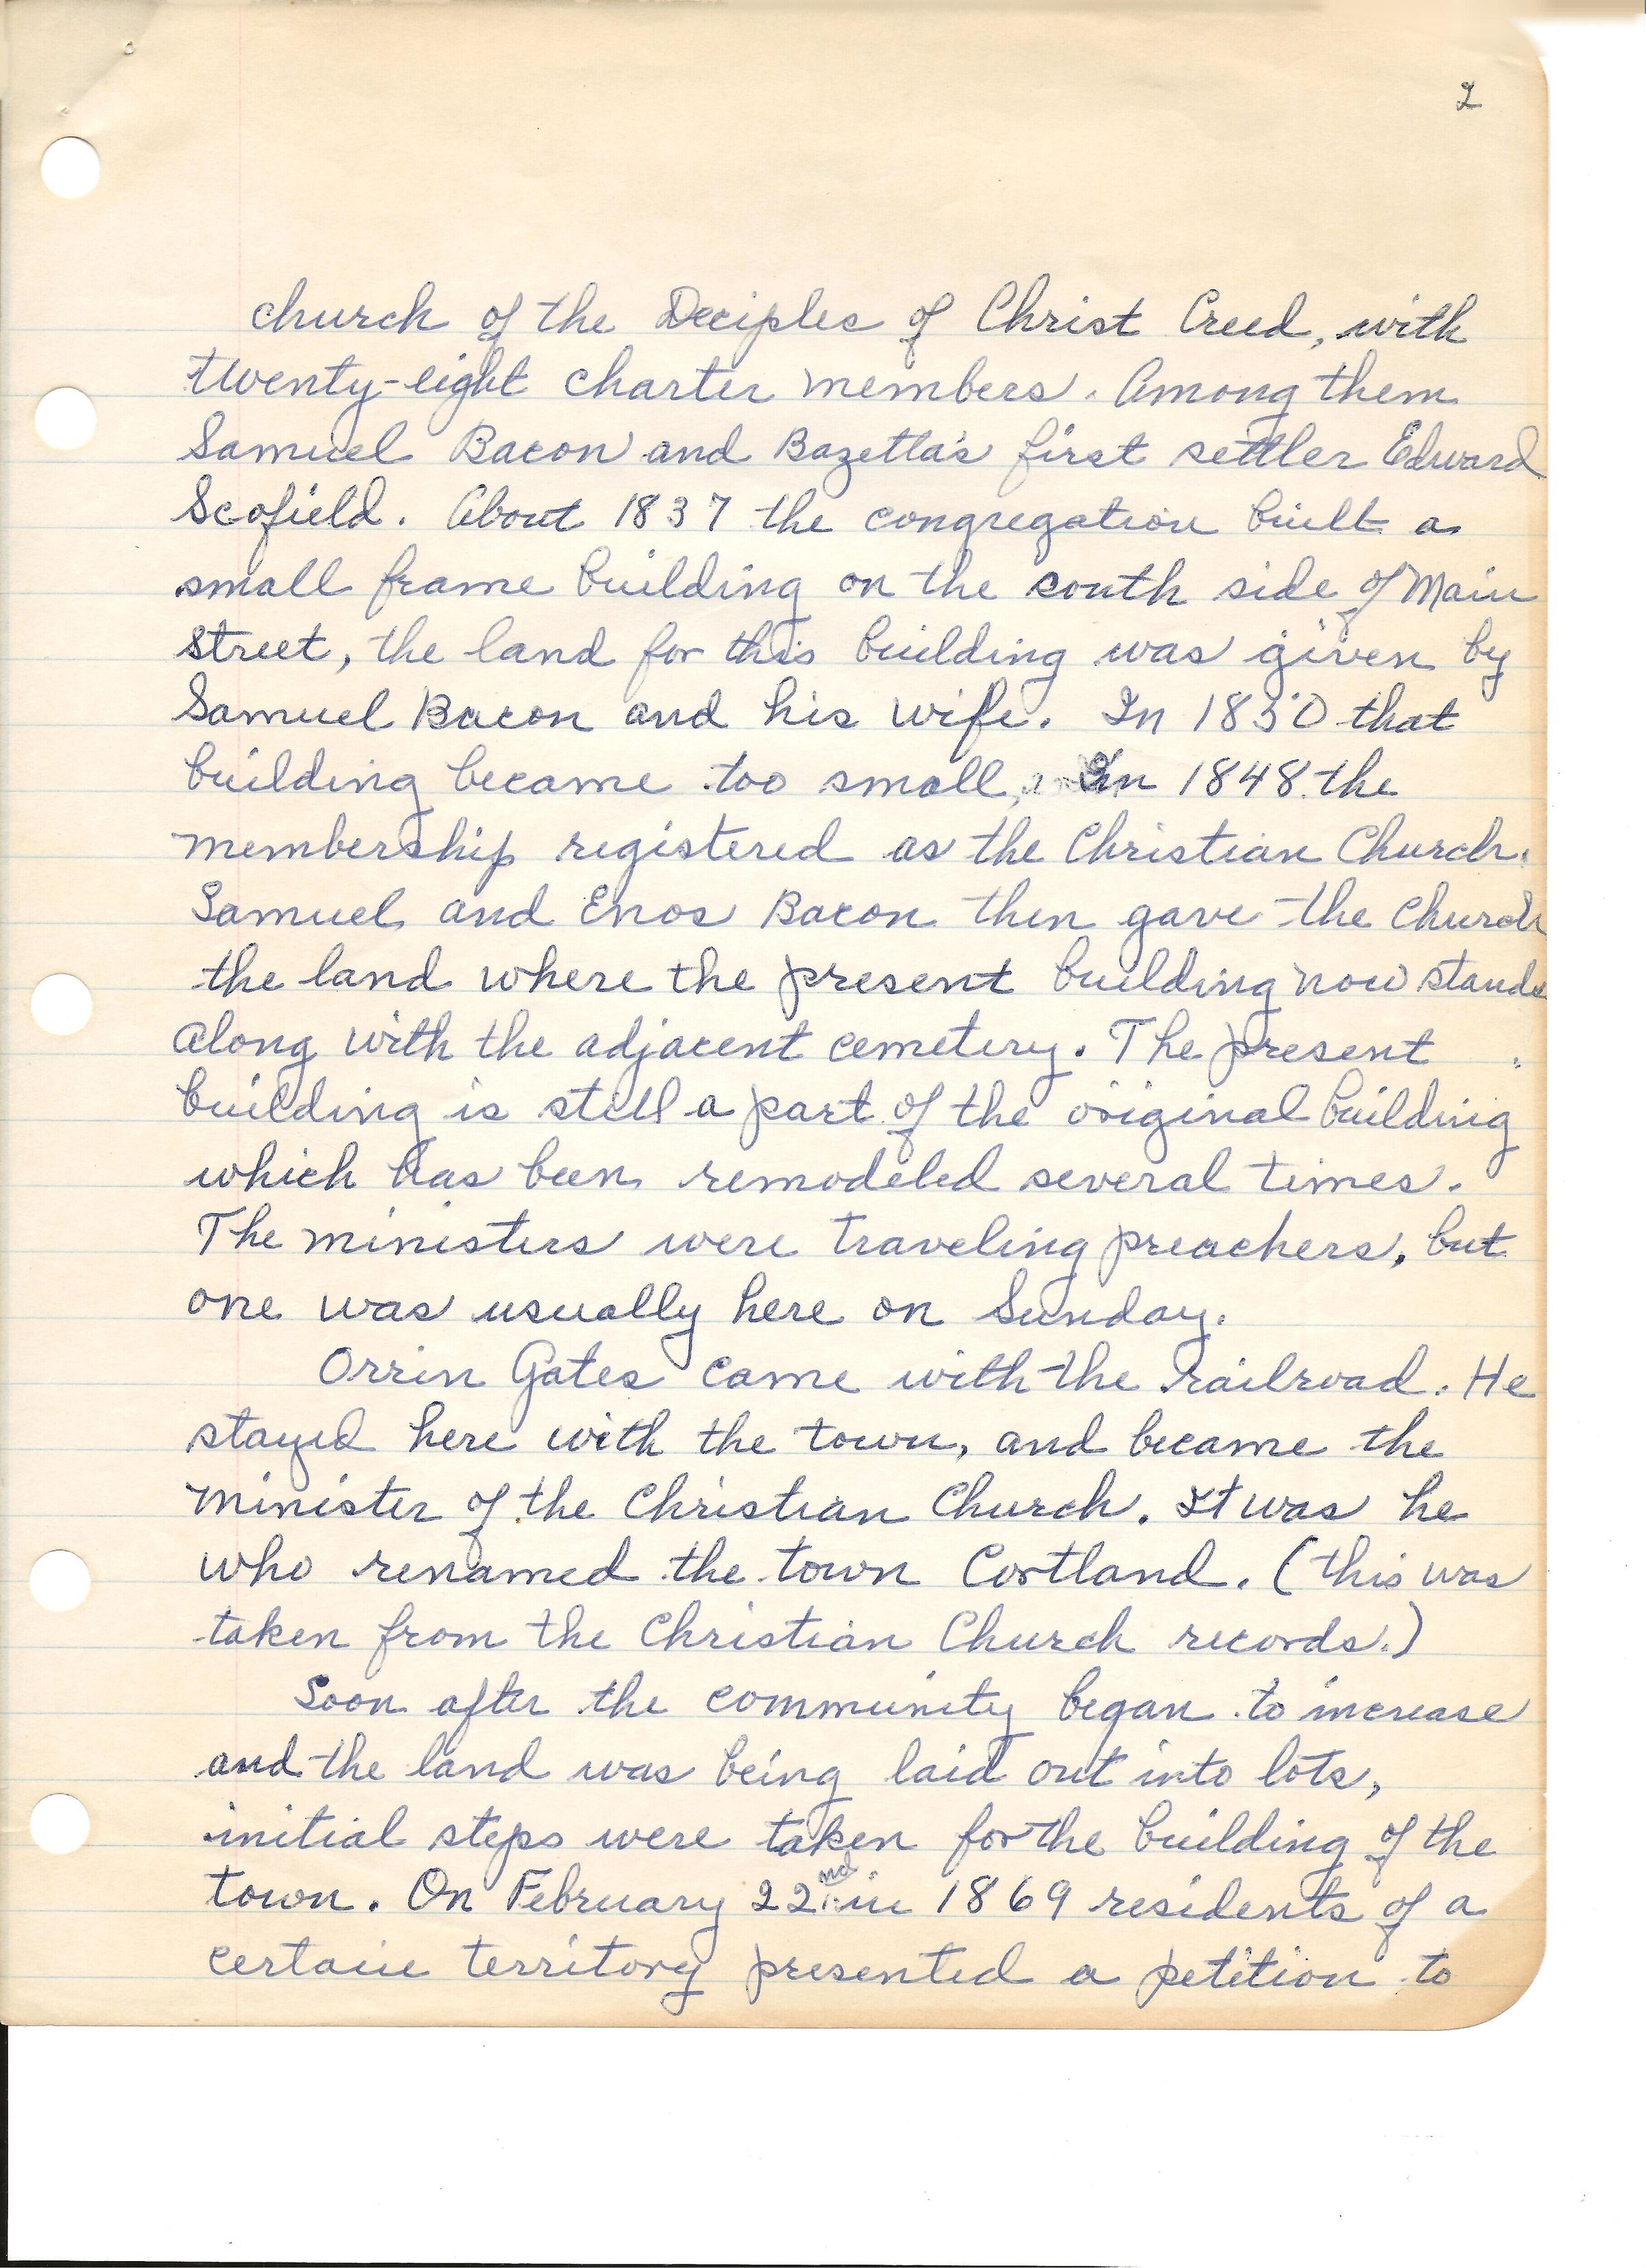 2
church of the Deciples of Christ Creed, with
twenty-eight charter members. Among them
Samuel Bacon and Bazetta's first settler Edward
Scofield. About 1837 the congregation built a
small frame building on the south side of Main
Street, the land for this building was given by
Samuel Bacon and his wife. In 1850 that
building became too small, In 1848 the
membership registered as the Christian Church.
Samuel and Enos Bacon then gave the Church
the land where the present building now stands
along with the adjacent cemetery. The present
building is still a part of the original building
which has been remodeled several times.
The ministers were traveling preachers, but
one was usually here on Sunday.
Orrin Gates came with the railroad. He
stayed here with the town, and became the
minister of the Christian Church. It was he
who renamed the town Cortland. (this was
taken from the Christian Church records.)
Soon after the community began to increase
and the land was being laid out into lots,
initial steps were taken for the building of the
town. On February 22nd in 1869 residents of a
certain territory presented a petition to